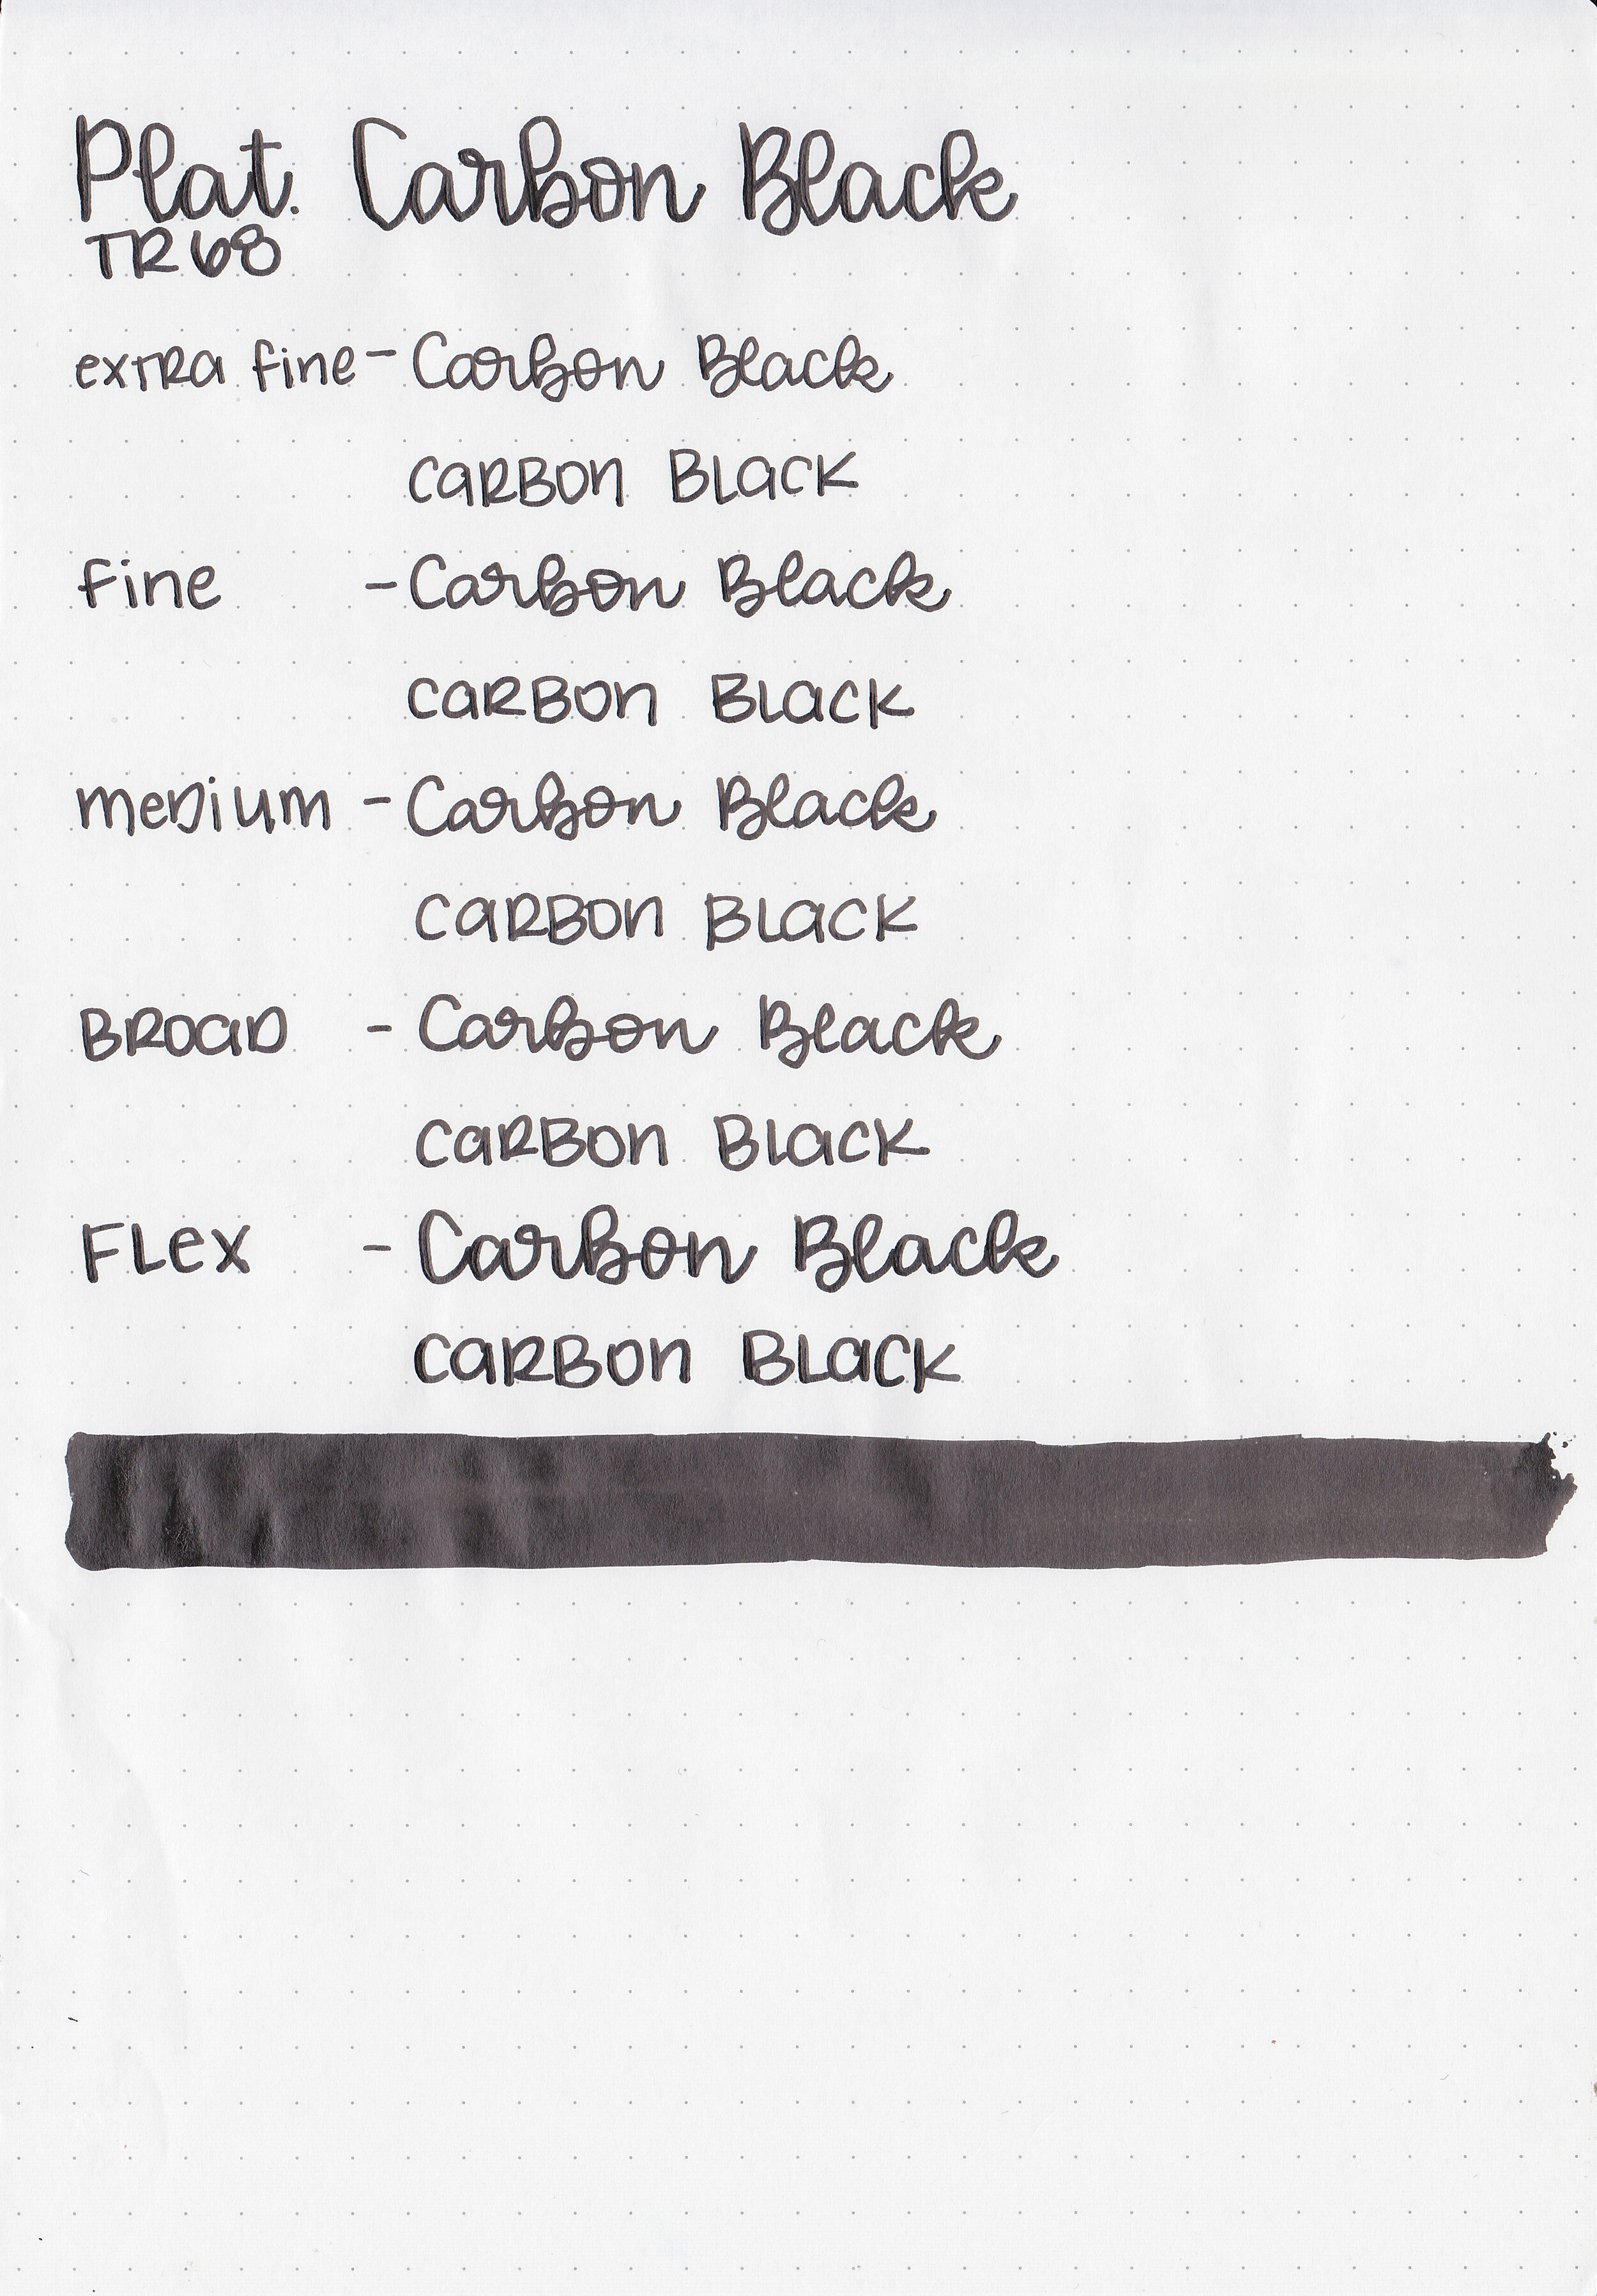 Plat. Carbon Black
TR68
extra fine - Carbon Black
CARBON BLACK
Fine - Carbon Black
CARBON BLACK
Medium - Carbon Black
CARBON BLACK
BROAD - Carbon Black
CARBON BLACK
FLex - Carbon Black
CARBON BLACK